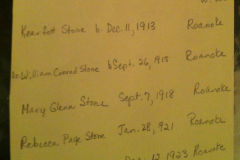 Kearfott Stone b. Dec. 11, 1913 Roanoke
Dr. William Conrad Stone b Sept. 26, 915 Roanoke
Mary Glenn Stone Sept. 7, 1918 Roanoke
Rebecca Page Stone Jan. 28, 921 Roanoke
12 1923 Roanoke